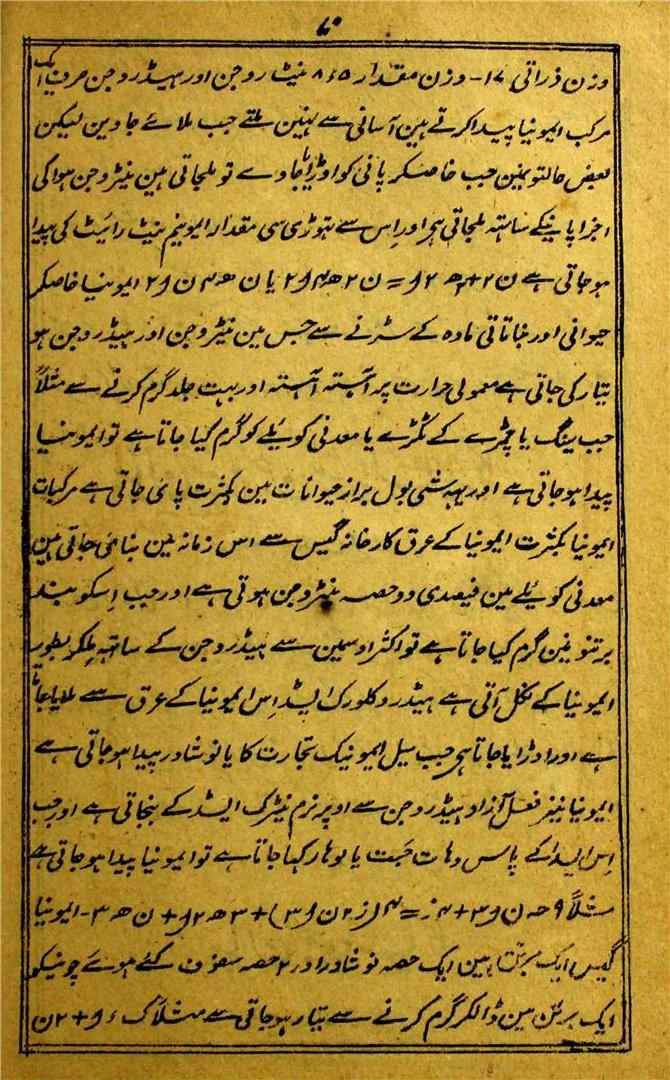 ۷۰
وزن ذراتی ۱۷ - وزن مقدار ۸۶۵ نیٹروجن اور ہیڈروجن صرف ایک
مرکب ایمونیا پیدا کرتے ہین آسانی سے نہین ملتے جب ملائے جاوین لیکن
بعض حالتونمین جب خاصکر پانی کو اوڑایا جاوے تو ملجاتی ہین نیٹروجن ہوا کی
اجزا پانیکے ساتہ ملجاتی ہی اور اِس سے تہوڑی سی مقدار ایمونیم نیٹ رائیٹ کی پیدا
ہوجاتی ہے ن۲+۲ھ۲و=ن۲ھ۴و۲ یا ن ھ۴ ن و۲ ایمونیا خاصکر
حیوانی اور نباتاتی مادہ کے سڑنے سے جس مین نیٹروجن اور ہیڈروجن ہو
تیار کی جاتی ہے معمولی حرارت پر آہستہ آہستہ اور بہت جلد گرم کرنے سے مثلاً
جب سینگ یا چمڑے کے ٹکڑے یا معدنی کویلے کو گرم کیا جاتا ہے تو ایمونیا
پیدا ہوجاتی ہے اور یہہ شی بول براز حیوانات مین بکثرت پائی جاتی ہے مرکبات
ایمونیا بکثرت ایمونیا کے عرق کارخانہ گیس سے اس زمانہ مین بنائی جاتی ہین
معدنی کویلے مین فیصدی دو حصہ نیٹروجن ہوتی ہے اور جب اِسکو بند
برتنونمین گرم کیا جاتا ہے تو اکثر اوسمین سے ہیڈروجن کے ساتہہ ملکر بطور
ایمونیا کے نکل آتی ہے ہیڈروکلورک ایسڈ اِس ایمونیا کے عرق سے ملایا جاتا
ہے اور اوڑایا جاتا ہی جب سیل ایمونیک تجارت کا یا نوشادر پیدا ہوجاتی ہے
ایمونیا نیز فعل آزاد ہیڈروجن سے اوپر نرم نیٹرک ایسڈ کے بنجاتی ہے اور جب
اِس ایسڈ کے پاس دہات جَست یا لوہا رکہا جاتا ہے تو ایمونیا پیدا ہوجاتی ہے
مثلاً ۹ ھ ن و۳+۴ز=۴(ز۲ن و۳)+۳ھ۲و+ن ھ۳ - ایمونیا
گیس ایک برتن مین ایک حصہ نوشادر اور ۲ حصہ سفوف کئے ہوئے چونیکو
ایک برتن مین ڈالکر گرم کرنے سے تیار ہوجاتی سے مثلاً ک و+۲ن